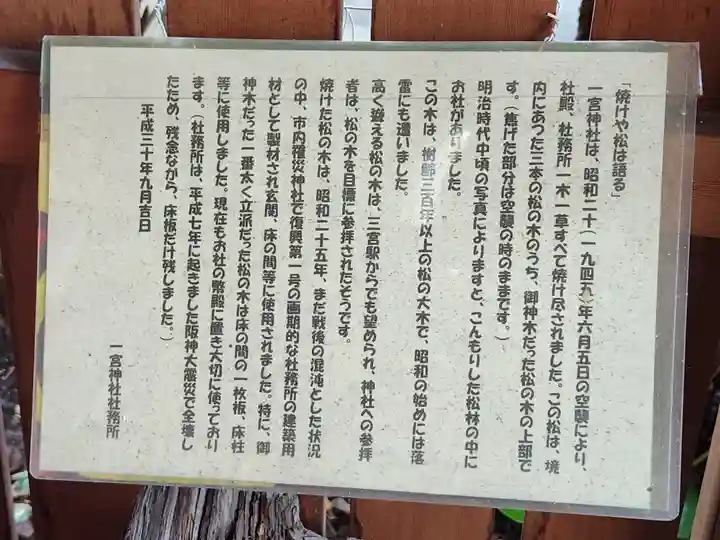 「焼けや松は語る」
一宮神社は、昭和二十(一九四五)年六月五日の空襲により、
社殿、社務所一木一草すべて焼け尽されました。この松は、境
内にあった三本の松の木のうち、御神木だった松の木の上部で
す。(焦げた部分は空襲の時のままです。)
明治時代中頃の写真によりますと、こんもりした松林の中に
お社がありました。
この木は、樹齢三百年以上の松の大木で、昭和の始めには落
雷にも遭いました。
高く聳える松の木は、三宮駅からでも望められ、神社への参拝
者は、松の木を目標に参拝されたそうです。
焼けた松の木は、昭和二十五年、まだ戦後の混沌とした状況
の中、市内罹災神社で復興第一号の画期的な社務所の建築用
材として製材され玄関、床の間等に使用されました。特に、御
神木だった一番太く立派だった松の木は床の間の一枚板、床柱
等に使用しました。現在もお社の幣殿に置き大切に使っており
ます。(社務所は、平成七年に起きました阪神大震災で全壊し
たため、残念ながら、床板だけ残しました。)
平成三十年九月吉日
一宮神社社務所